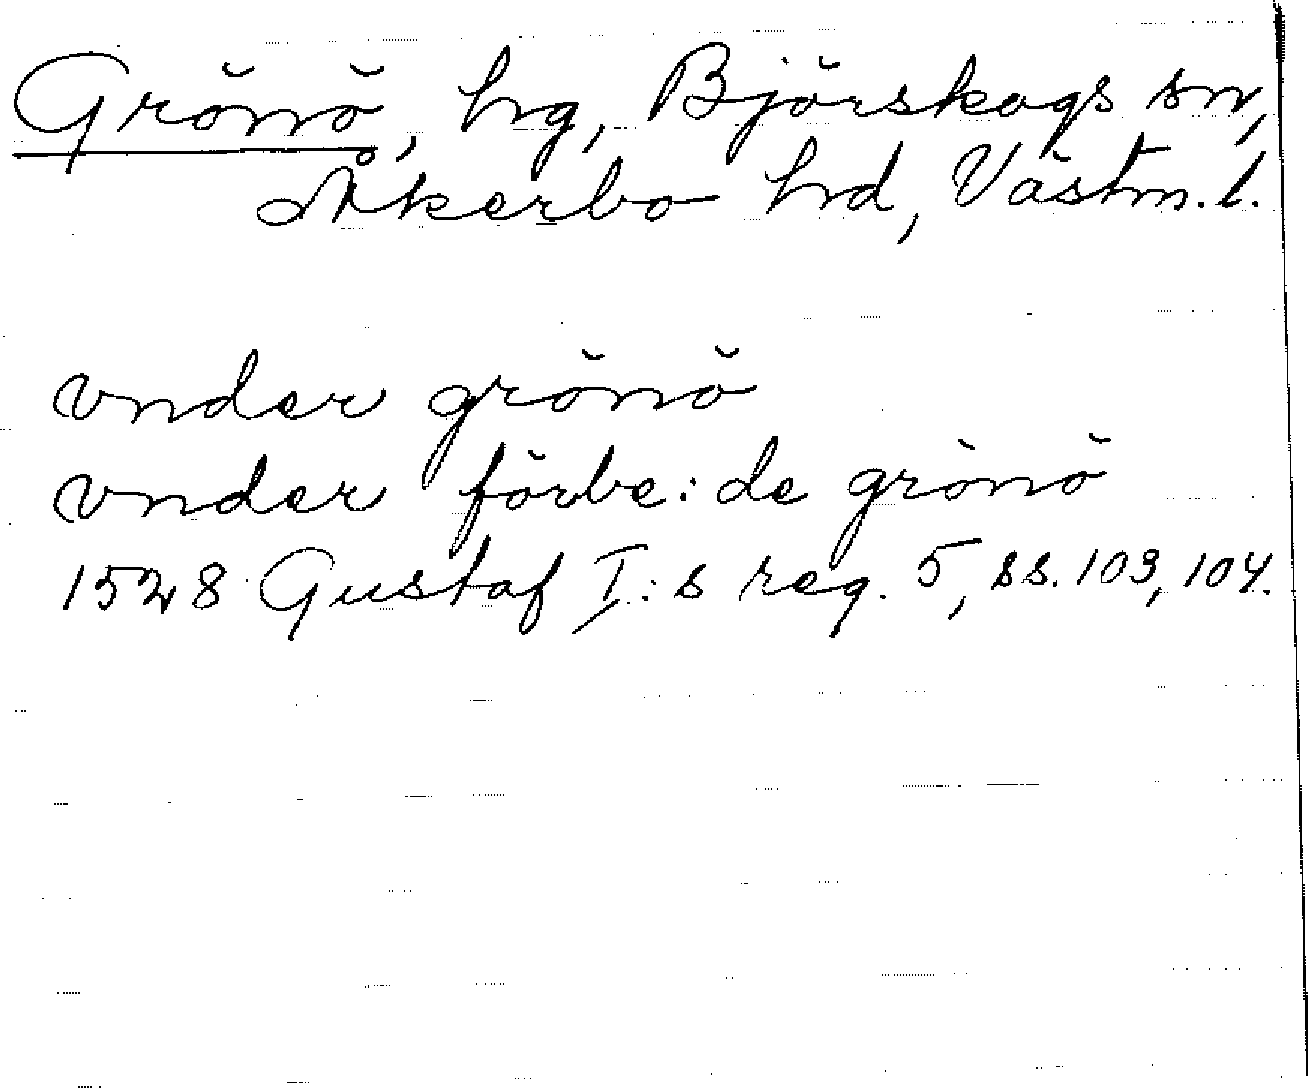 Grönö, hg, Björskogs sn,
Åkerbo hd, Västm. l.
vnder grönö
vnder förbe:de grönö
1528 Gustaf I:s reg. 5, ss. 103, 104.